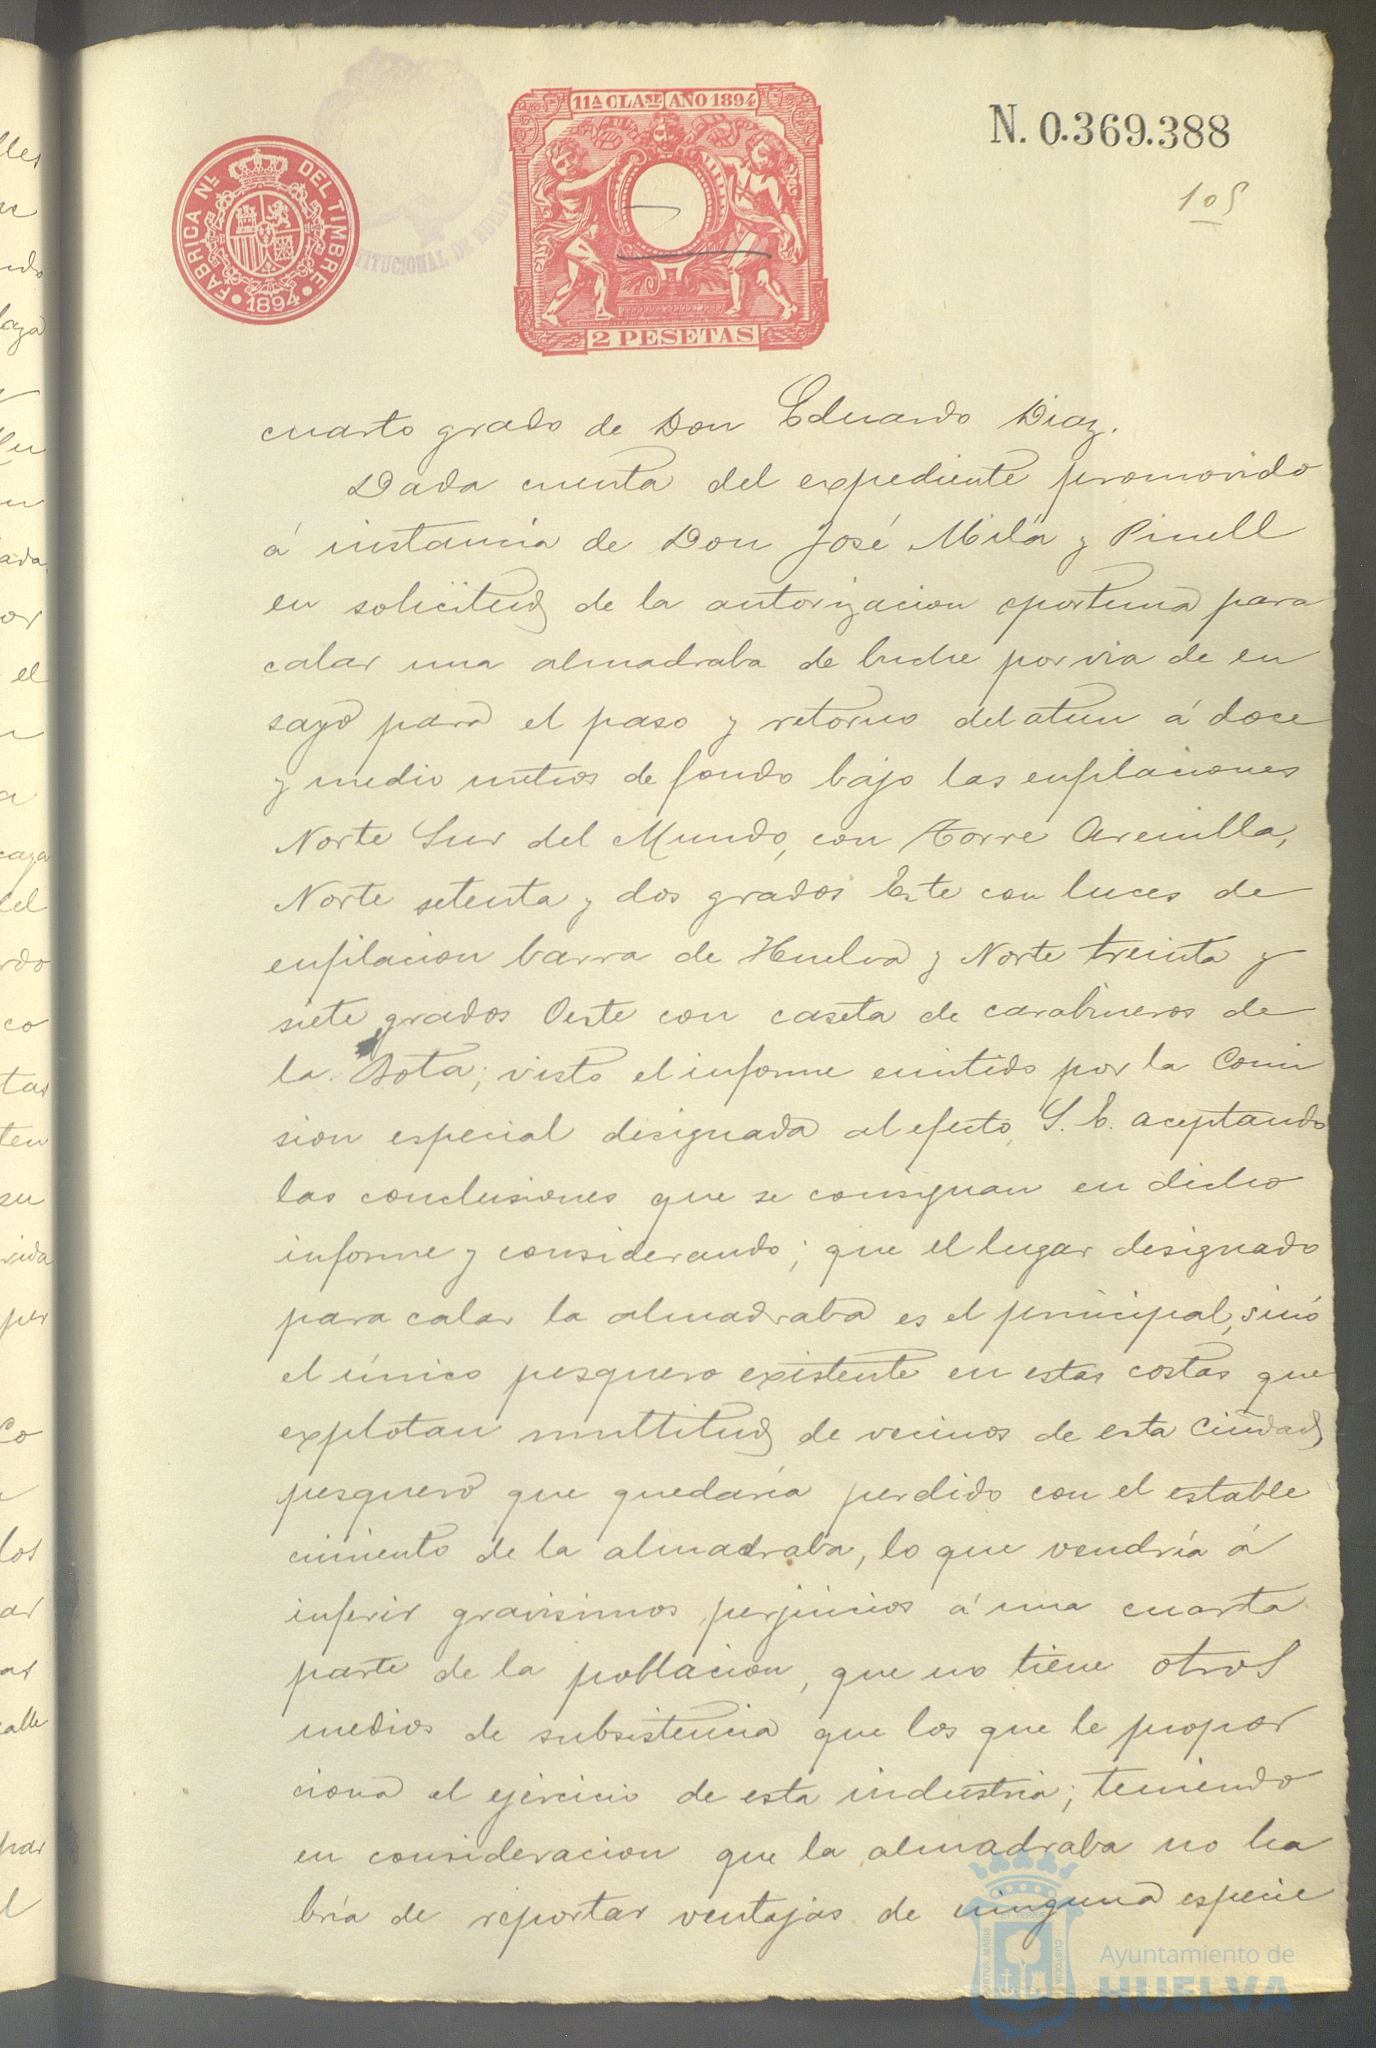 11ª CLASE AÑO 1894
N. 0.369.388
FABRICA Nˡ DEL TIMBRE
1894
TITUCIONAL DE HUELVA
2 PESETAS
105
cuarto grado de Don Eduardo Diaz.
Dada cuenta del expediente promovido
á instancia de Don José Milá y Pinell
en solicitud de la autorizacion oportuna para
calar una almadraba de buche por via de en
sayo para el paso y retorno del atun á doce
y medio metros de fondo bajo las enfilaciones
Norte Sur del Mundo, con Torre Arenilla,
Norte setenta y dos grados Este con luces de
enfilacion barra de Huelva y Norte treinta y
siete grados Oeste con caseta de carabineros de
la Bota; visto el informe emitido por la Comi
sion especial designada al efecto, S. E. aceptando
las conclusiones que se consignan en dicho
informe y considerando; que el lugar designado
para calar la almadraba es el principal, sinó
el único pesquero existente en estas costas que
explotan multitud de vecinos de esta Ciudad,
pesquero que quedaría perdido con el estable
cimiento de la almadraba, lo que vendría á
inferir gravisimos perjuicios á una cuarta
parte de la poblacion, que no tiene otros
medios de subsistencia que los que le propor
ciona el ejercicio de esta industria; teniendo
en consideracion que la almadraba no ha
bría de reportar ventajas de ninguna especie
Ayuntamiento de
HUELVA